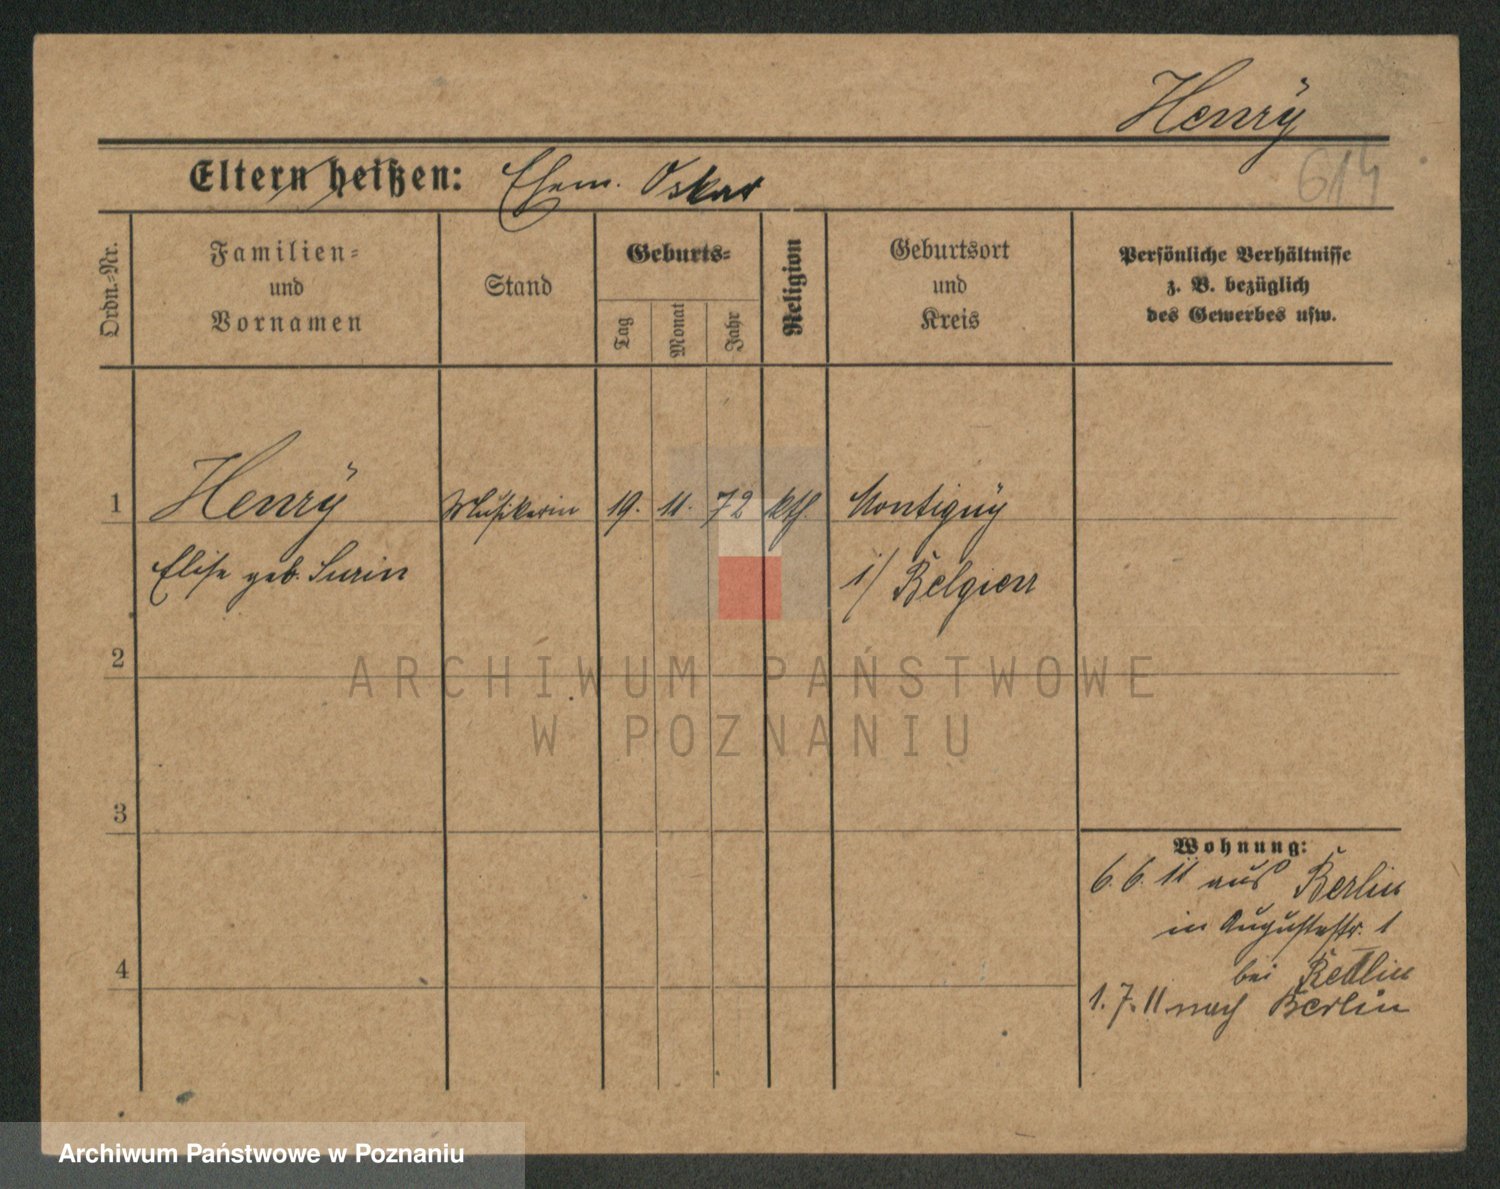 Henrÿ
614
Eltern heißen: Ehem. Oskar
Ordn.-Nr.
Familien-
und
Vornamen
Stand
Geburts-
Tag
Monat
Jahr
Religion
Geburtsort
und
Kreis
Persönliche Verhältnisse
z. B. bezüglich
des Gewerbes usw.
1 Henrÿ Musikerin 19. 11. 72 kth. Montignÿ
Elise geb. Surin i/ Belgien
2
ARCHIWUM PAŃSTWOWE
W POZNANIU
3
Wohnung:
6. 6. 11 aus Berlin
in Augustastr. 1
4
bei
1. 7. 11 nach Berlin
Archiwum Państwowe w Poznaniu